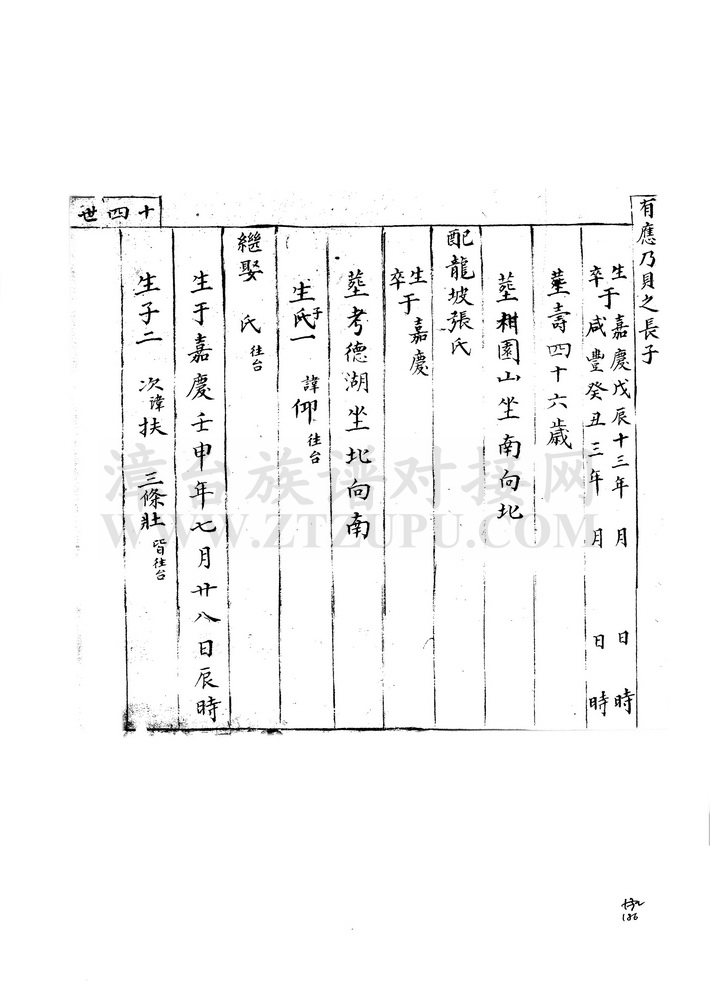 十四世
有應乃貝之長子
生于嘉慶戊辰十三年 月 日 時
卒咸豐癸丑三年 月 日 時
壽四十六歲
塟柑園山坐南向北
配龍坡張氏
生于嘉慶
卒
塟考德湖坐北向南
生氏子一 諱仰 往台
繼娶 氏 往台
生于嘉慶壬申年七月廿八日辰時
生子二 次諱扶 三條壯 皆往台
漳台族谱对接网
WWW.ZTZUPU.COM
186